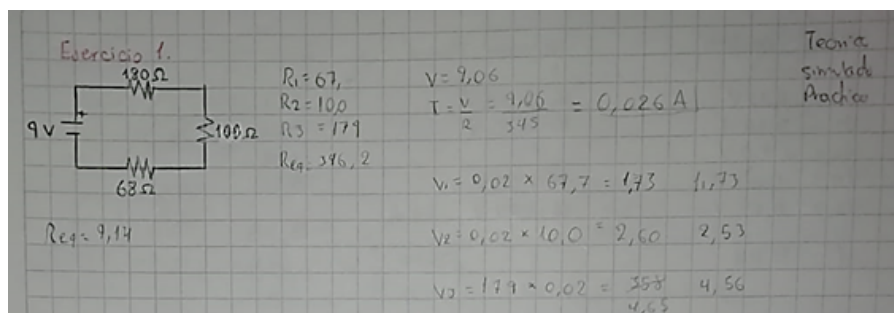 Ejercicio 1.
180Ω
9V
100Ω
68Ω
Req = 9,14
R1 = 67,
R2 = 10,0
R3 = 179
Req = 346,2
V = 9,06
I = V/2 = 9,06/345 = 0,026 A
V1 = 0,02 × 67,7 = 1,73 1,73
V2 = 0,02 × 10,0 = 2,60 2,53
V3 = 179 × 0,02 = 358 4,56
4,65
Teoria
simulado
Practico